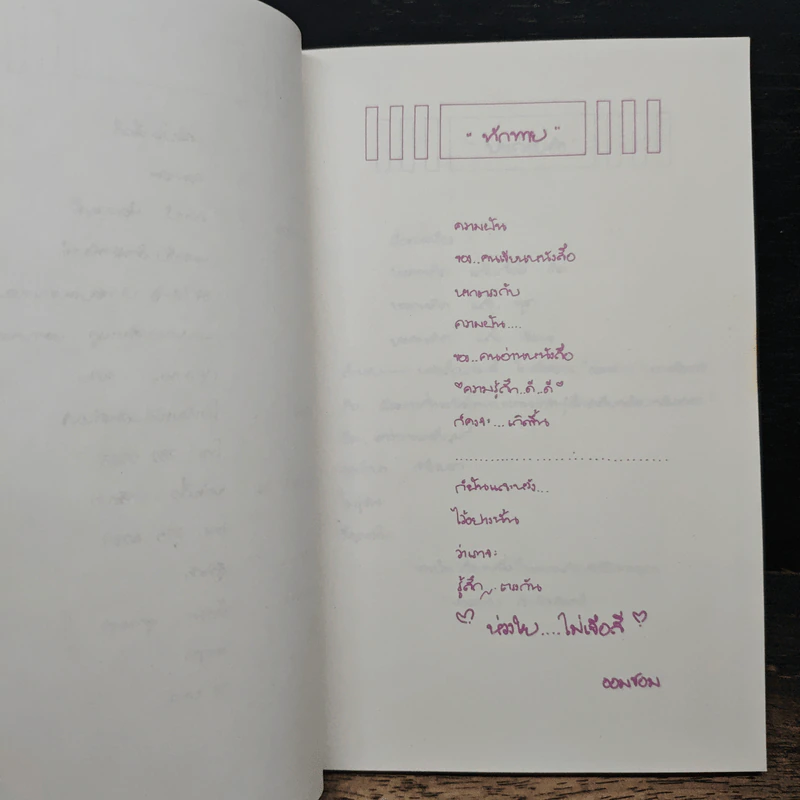 "ทักทาย"
ความฝัน
ของ..คนเขียนหนังสือ
หากตรงกับ
ความฝัน....
ของ..คนอ่านหนังสือ
"ความรู้สึก..ดี..ดี"
ก็คงจะ...เกิดขึ้น
ก็ฝันและหวัง...
ไว้อย่างนั้น
ว่าเราจะ
รู้สึก...ตรงกัน
ห่วงใย....ไม่เจือสี
ออมชอม